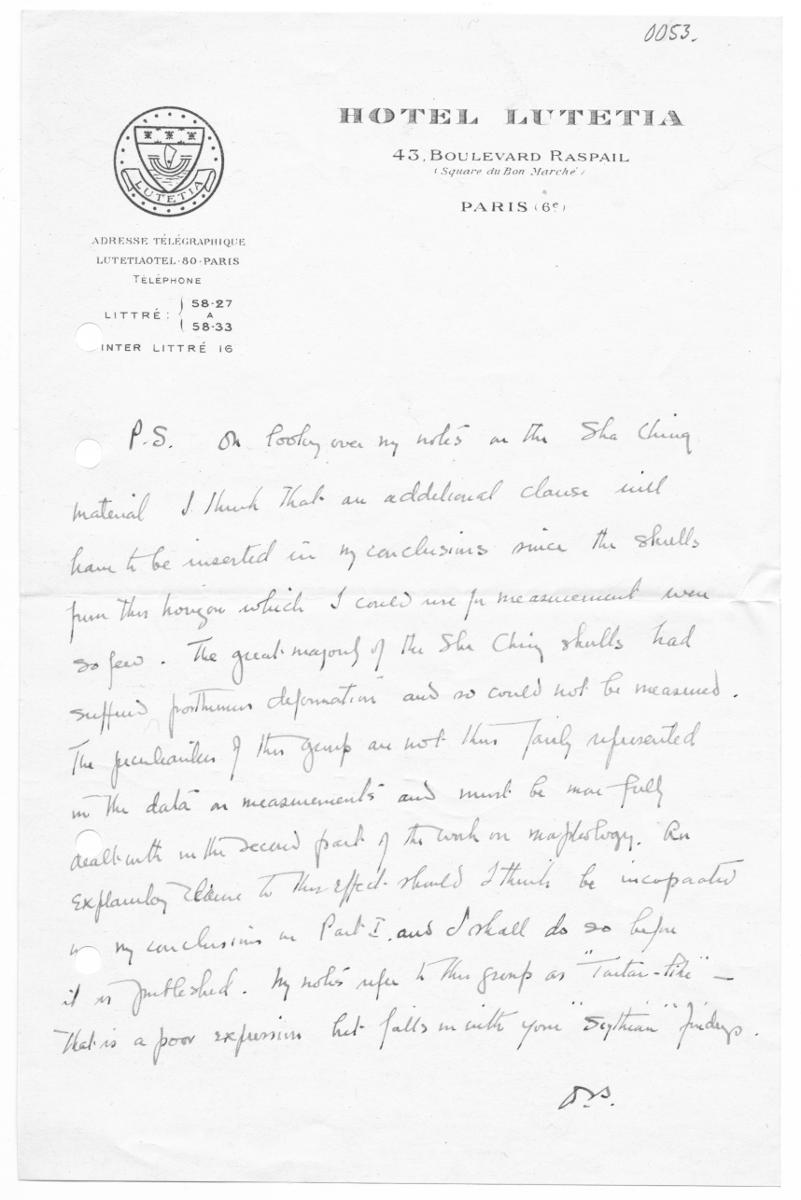 0053.
HOTEL LUTETIA
43, BOULEVARD RASPAIL
(Square du Bon Marché)
PARIS (6e)
LUTETIA
ADRESSE TÉLÉGRAPHIQUE
LUTETIAOTEL-80-PARIS
TÉLÉPHONE
LITTRÉ: { 58-27
A
58-33
INTER LITTRÉ 16
P.S. On looking over my notes on the Sha Ching
material I think that an additional clause will
have to be inserted in my conclusions since the skulls
from this horizon which I could use for measurement were
so few. The great majority of the Sha Ching skulls had
suffered posthumous deformation and so could not be measured.
The peculiarities of this group are not thus fairly represented
in the data on measurements and must be more fully
dealt with in the second part of the work on morphology. An
explanatory clause to this effect should I think be incorporated
in my conclusions in Part I, and I shall do so before
it is published. My notes refer to this group as "Tartar-like" —
that is a poor expression but falls in with your "Scythian" findings.
D.B.